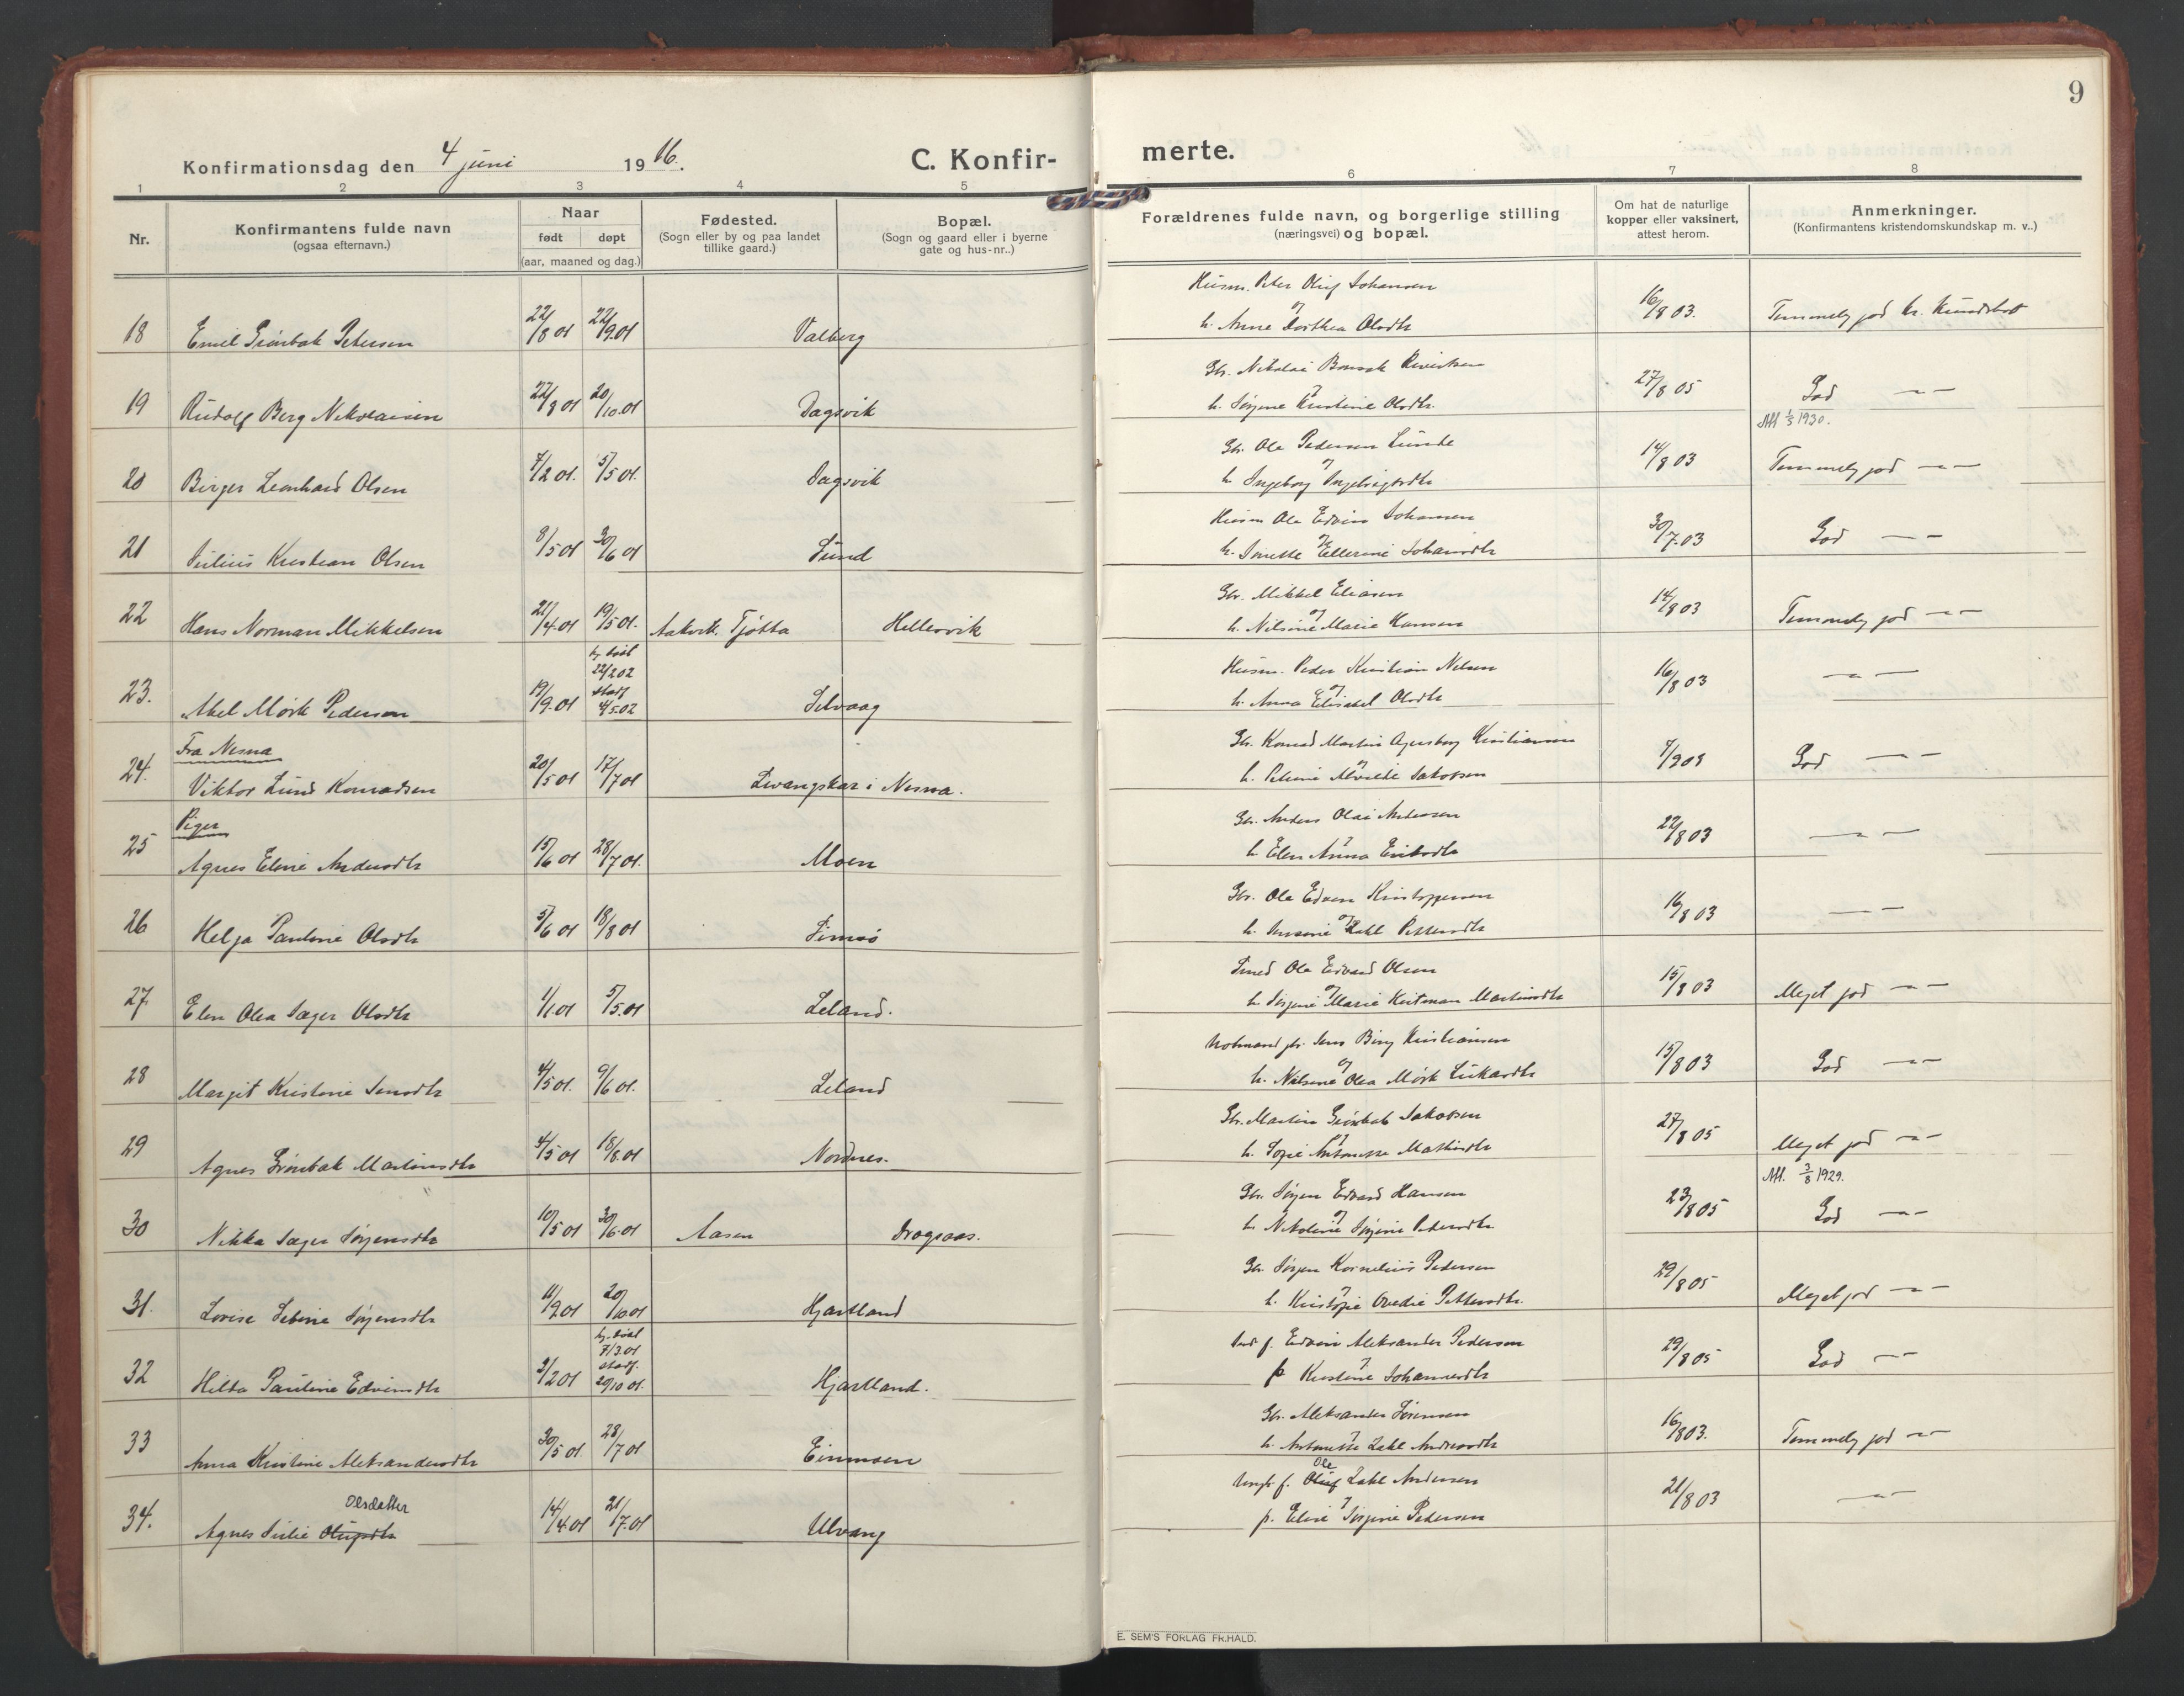 9
Konfirmationsdag den 4 juni 1916. C. Konfirmerte.
1 2 3 4 5 6 7 8
Nr.
Konfirmantens fulde navn
(ogsaa efternavn.)
Naar
født døpt
(aar, maaned og dag.)
Fødested.
(Sogn eller by og paa landet
tillike gaard.)
Bopæl.
(Sogn og gaard eller i byerne
gate og hus-nr..)
Forældrenes fulde navn, og borgerlige stilling
(næringsvei) og bopæl.
Om hat de naturlige
kopper eller vaksinert,
attest herom.
Anmerkninger.
(Konfirmantens kristendomskundskap m. v..)
Husm. Peter Oluf Johansen
og
18 Emil Grönbek Petersen 22/8 01 22/9.01 Valberg h. Anne Dorthea Olsdtr 16/8 03. Temmelig god kr. Kundskab
Gbr. Nikolai Benjamin
19 Rudolf Berg Nikolaisen 22/8 01 20/10.01 Dagsvik h. Jørgine Kristine Olsdtr. 27/8 05 God — " —
Afl 1/5 1930.
Gbr. Ole Pedersen Lunde
og
20 Birger Leonhard Olsen 7/2 01. 5/5 01. Dagsvik h. Ingeborg Ingebrigtsdtr 14/8 03 Temmelig god — " —
Husm Ole Edvin Johansen
og
21 Julius Kristian Olsen 8/5 01 30/6 01 Lund h. Ellerine Johansdtr 30/7.03 God — " —
Gbr. Mikkel Eliasen
og
22 Hans Norman Mikkelsen 21/4.01 19/5 01. Aakvik. Tjøtta Hellesvik h. Nilsine Marie Hansen 14/8 03 Temmelig god — " —
hj. døbt
22/2 02
stadf
4/5.02
Husm. Peder Kristian Nilsen
og
23. Aksel Mörk Pedersen 19/9.01 Selvaag h. Anna Elisabet Olsdtr 16/8 03 — " —
Fra Nesna
Gbr. Konrad Martin Agersborg Kristiansen
24. Viktor Lund Konradsen 20/5 01 17/7 01 Levangskar i Nesna. h. Petrine Alvilde Jakobsen God — " —
Piger
Gbr. Anders Olai Andersen
25 Agnes Eline Andersdtr 15/6 01 28/7 01. Moen h. Elen Anna Eriksdtr 22/8 03 — " —
Gbr. Ole Edvin Kristoffersen
og
26 Helga Pauline Olsdtr 5/6 01 18/8 01 Simsø h. Zahl Pettersdtr 16/8 03 — " —
Smed Ole Edvard Olsen
og
27. Elen Olea Sæger Olsdtr 1/1.01 5/5.01 Leland. h. Jørgine Marie Martinsdtr 15/8 03 Meget god — " —
Jens Berg Kristiansen
og
28 Margit Kristine Jensdtr 4/5 01. 9/6 01. Leland h. Nilsine Olea Mörk Lukasdtr 15/8 03 God — " —
Gbr. Martin Grönbek Jakobsen
29 Agnes Grönbek Martinsdtr 4/5 01 18/8.01 Nordnes. h. Sofie Antonette Mathisdtr 27/8 05 Meget god — " —
Afl. 3/8 1929.
Gbr. Jörgen Edvard Hansen
og
30 Nikka Sæger Jörgensdtr 10/5 01 30/6.01 Aasen Dragsaas. h. Nikoline Jörgine Petersdtr 23/8 05 God — " —
Gbr. Jörgen Kornelius Pedersen
31. Lovise Sebine Jörgensdtr 11/9 01 20/10 01 Hjartland h. Kristofie Ovedie Pettersdtr. 29/8 05 Meget god — " —
hj. døbt
7/3.01
stadf.
20/10 01.
f. Edvin Aleksander Pedersen
32 Hilda Pauline Edvinsdtr 2/2 01 Hjartland. p. Kristine Johannesdtr 29/8 05 God — " —
Gbr. Aleksander Sörensen
33 Anna Kristine Aleksandersdtr 30/5 01. 28/7 01 Einmoen h. Antonette Zahl Andersdtr 16/8 03. Temmelig god — " —
Olsdatter
Ole
Ungk. f. Oluf Zahl Andersen
34. Agnes Julie Olufsdtr 14/4 01 21/7.01 Ulvang p. Eline Jörgine Pedersen 21/8 03 — " —
E. SEM'S FORLAG FR.HALD.